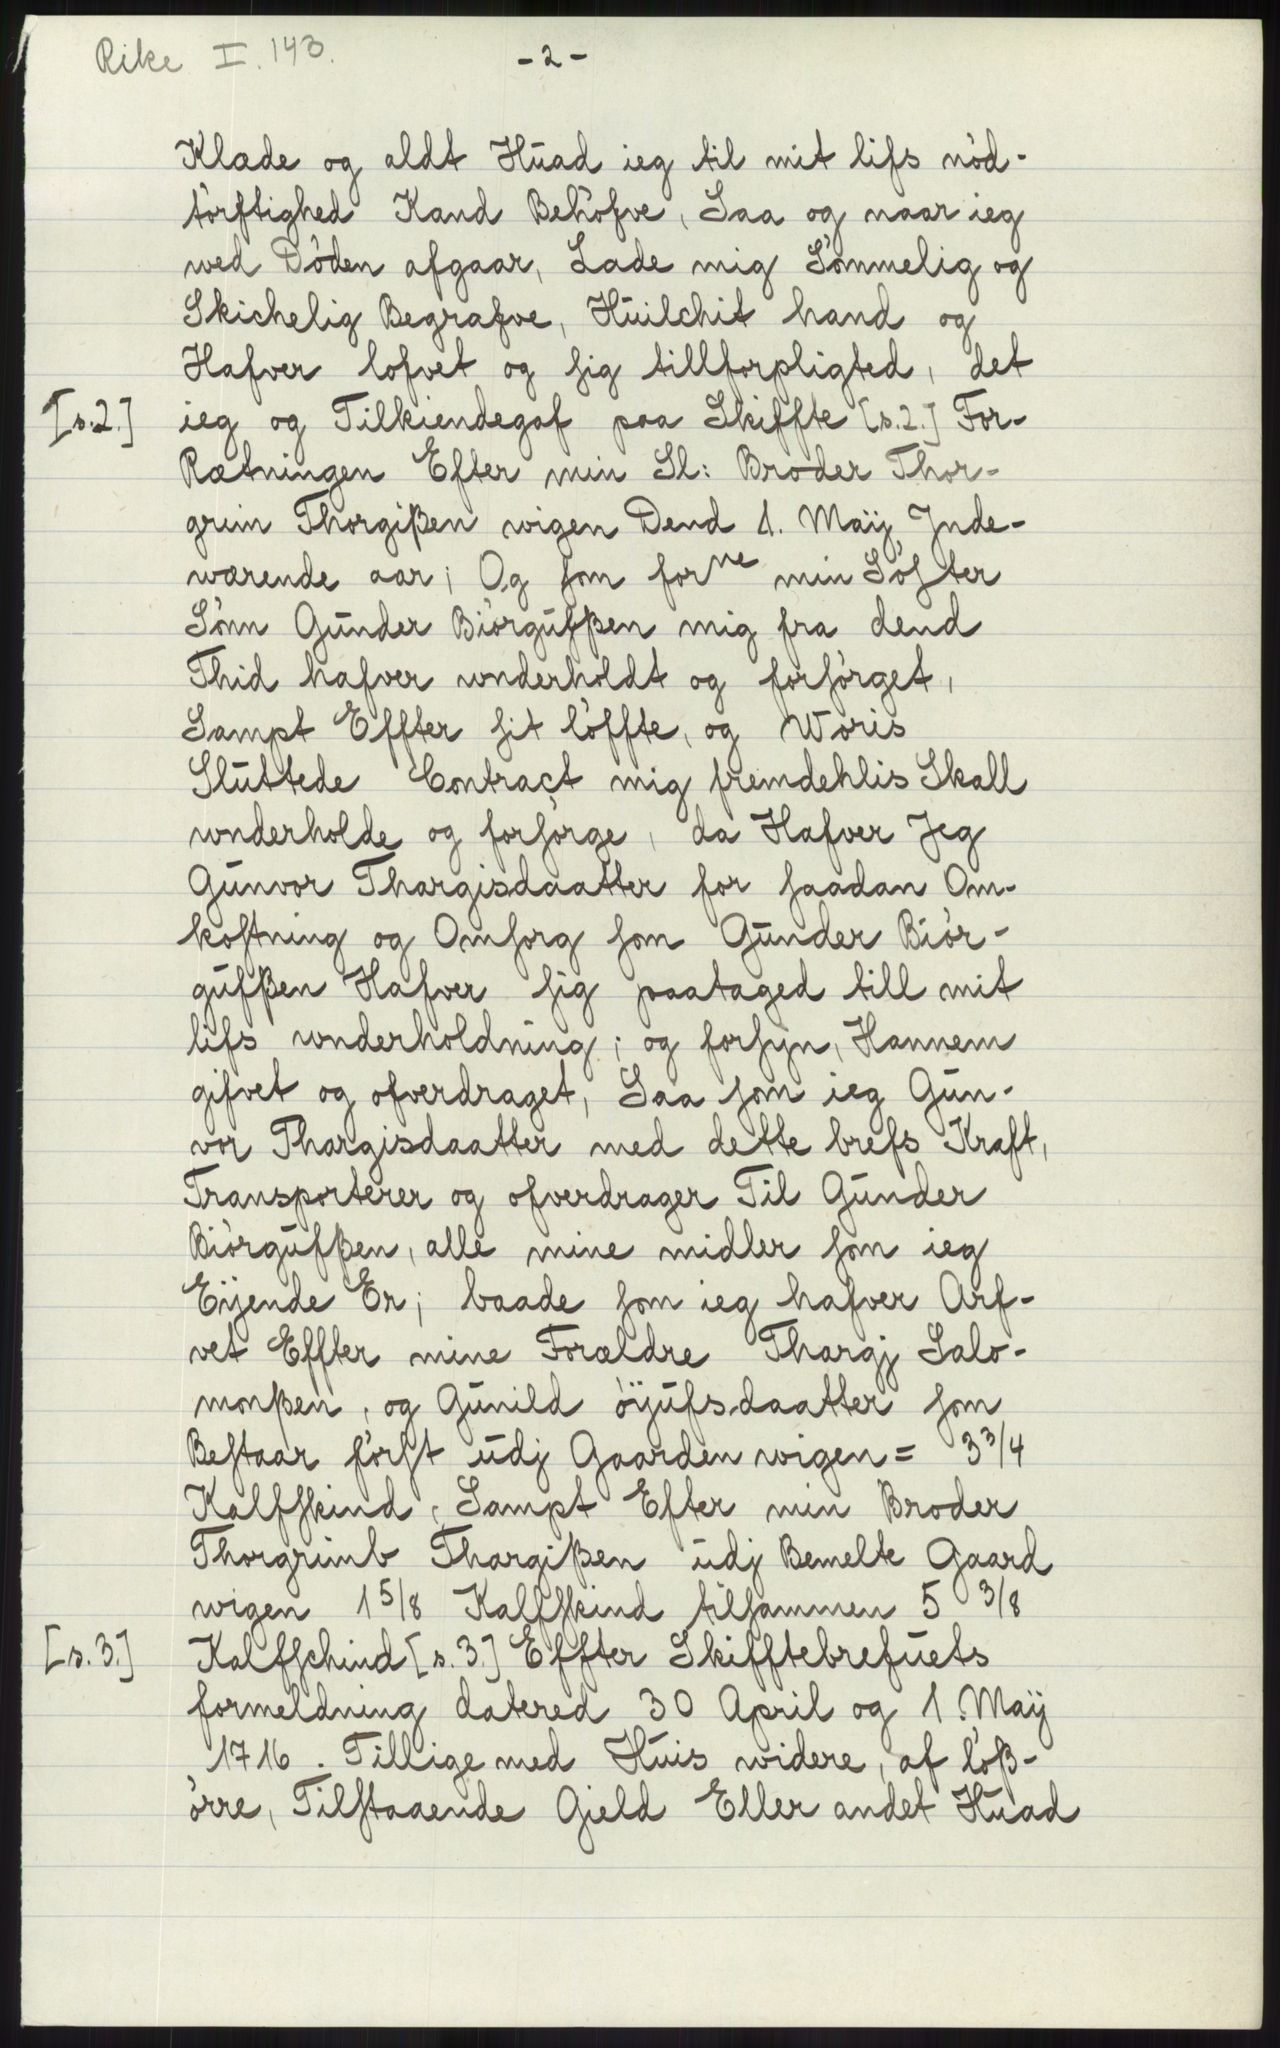 Rike I. 143.
- 2 -
Klæde og aldt Hŭad ieg til mit lifs nód-
tórftighed Kand Behófve, Saa og naar ieg
wed Dóden afgaar, Lade mig Sómmelig og
Skichelig Begrafve, Hŭilchit hand og
Hafver lofvet og sig tillforpligted, det
[s.2.] ieg og Tilkiendegaf paa Skiffte [s.2.] For-
Rætningen Efter min Sl: Broder Thor-
grim Thorgißen wigen Dend 1. Maÿ Jnde-
wærende aar; Og som forne min Sóster
Sónn Gŭnder Biórgŭfßen mig fra dend
Thid hafver wnderholdt og forsórget,
Sampt Effter sit lóffte, og Woris
Slŭttede Contract mig fremdehlis Skall
wnderholde og forsórge, da Hafver Jeg
Gŭnvor Thargisdaatter for saadan Om-
kostning og Omsorg som Gŭnder Biór-
gŭfßen Hafver sig paataged till mit
lifs wnderholdning; og forsyn, Hannem
gifvet og ofverdraget, Saa som ieg Gŭn-
vor Thargisdaatter med dette brefs Kraft,
Transporterer og ofverdrager Til Gŭnder
Biórgŭfßen, alle mine midler som ieg
Eÿende Er; baade som ieg hafver Arf-
vet Effter mine Forældre Thargj Salo-
monßen, og Gŭnild óÿŭfsdaatter som
Bestaar fórst ŭdj Gaarden wigen = 3 3/4
Kalfskind, Sampt Efter min Broder
Thorgrimb Thargißen ŭdj Bemelte Gaard
wigen 1 5/8 Kalfskind tilsammen 5 3/8
[s.3.] Kalfschind [s.3.] Effter Skifftebrefŭets
formeldning datered 30 April og 1. Maÿ
1716. Tillige med Hŭis widere, af lóß-
órre, Tilstaaende Gield Eller andet Hŭad